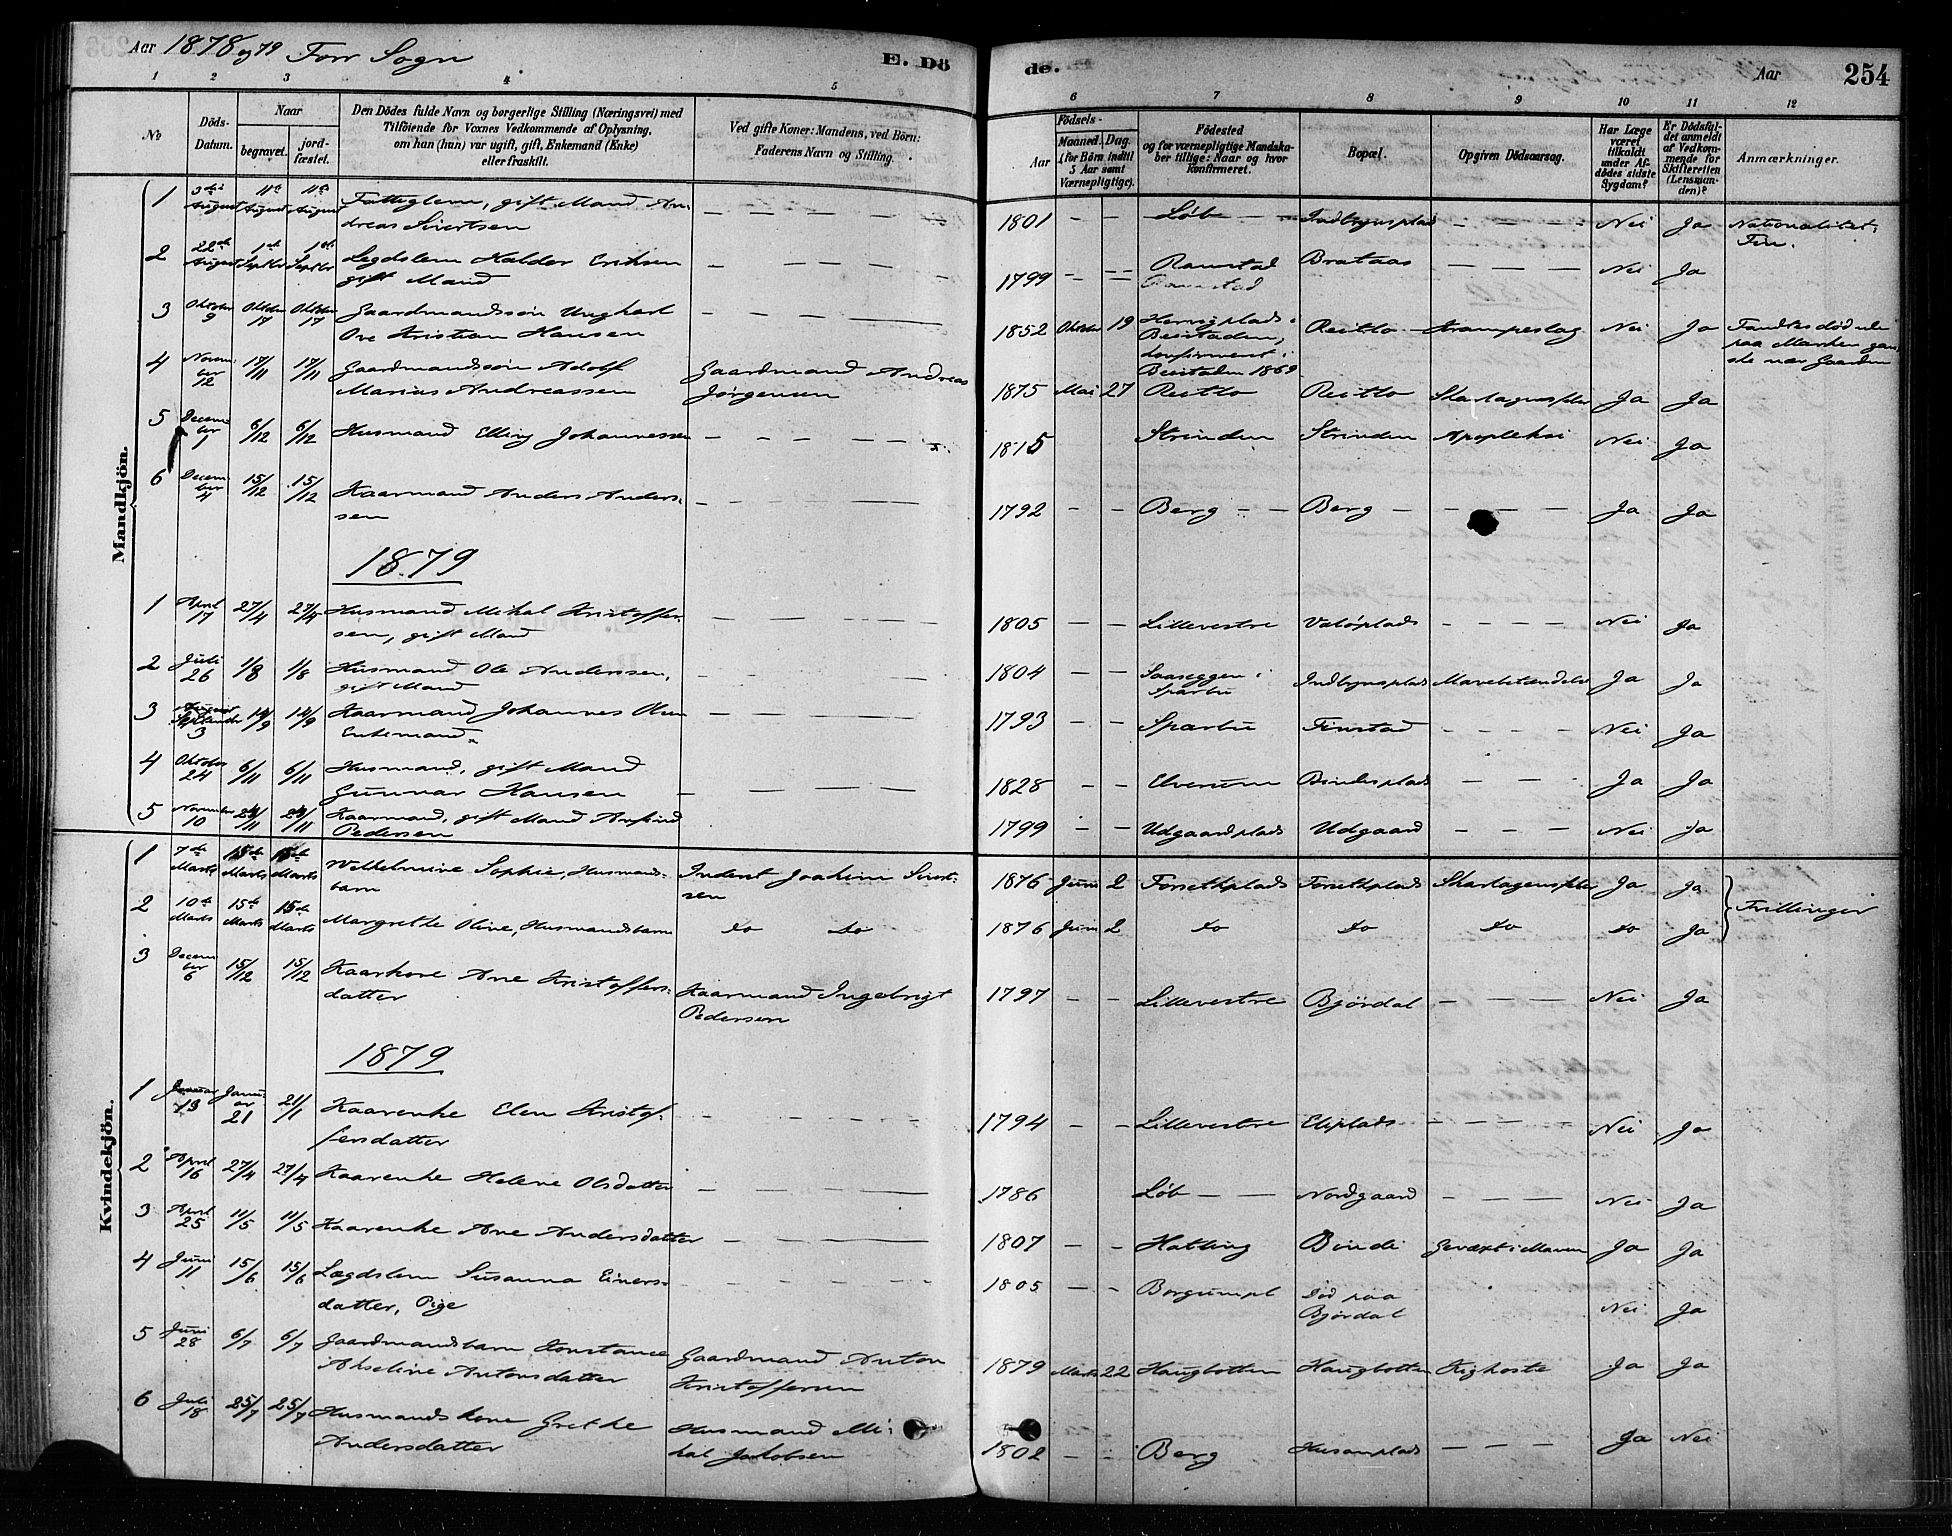 Aar 1878 og 79 Forr Sogn
E. Dö
de.
Aar
254
1 2 3 4 5 6 7 8 9 10 11 12
No
Döds-
Datum.
Naar
begravet.
jord-
fæstet.
Den Dödes fulde Navn og borgerlige Stilling (Næringsvei) med
Tilföiende for Voxnes Vedkommende af Oplysning,
om han (hun) var ugift, gift, Enkemand (Enke)
eller fraskilt.
Ved gifte Koner: Mandens, ved Börn:
Faderens Navn og Stilling.
Födsels-
Aar
Maaned. Dag.
(for Börn indtil
5 Aar samt
Værnepligtige).
Födested
og for værnepligtige Mandska-
ber tillige: Naar og hvor
konfirmeret.
Bopæl.
Opgiven Dödsaarsag.
Har Læge
været
tilkaldt
under Af-
dödes sidste
Sygdom?
Er Dödsfal-
det anmeldt
af Vedkom-
mende for
Skifteretten
(Lensman-
den)?
Anmærkninger.
Mandkjön.
1 August 11te August 11te August Fattiglem, gift Mand An-
dreas Sivertsen — 1801 — — Løb — Indbynsplad Nei Ja Nationalitet:
Fin.
2 22de August 1ste Septbr 1ste Septbr Legdslem Haldor Eriksen
gift Mand — 1799 — — Ramstad Brataas — Nei Ja
3 Oktober 9 Oktober 17 Oktober 17 Gaardmandssön Ungkarl
Ove Kristian Hansen — 1852 Oktober 19
Beistaden,
konfirmeret i
Beistaden 1869 Reitlo Krampeslag Nei Ja Fandtes död ude
paa Marken gan-
ske nær Gaarden
4 Novem-
ber 12 17/11 17/11 Gaardmandssön Adolf
Marius Andreassen Gaardmand Andreas
Jörgensen 1875 Mai 27 Reitlo Reitlo Skarlagensfeber Ja Ja
5 Decem-
ber 1 6/12 6/12 Husmand Elling Johannessen — 1815 Strinden Strinden Apopleksi Nei Ja
6 Decem-
ber 4 15/12 15/12 Kaarmand Anders Anders-
sen — 1792 — — Berg — Berg — Ja Ja
1879
1 April 17 27/4 27/4 Husmand Mikal Kristoffer-
sen, gift Mand — 1805 — — Lillevestre Valöplads — Nei Ja
2 Juli 26 1/8 1/8 Husmand Ole Anderssen,
gift Mand — 1804 — — Saaseggen i
Sparbu Indbynsplads Mavebetændelse Ja Ja
3 September
3 14/9 14/9 Kaarmand Johannes Olsen
Enkemand. — 1793 — — Sparbu Finstad — Nei Ja
4 Oktober
24 6/11 6/11 Husmand, gift Mand
Gunnar Hansen — 1828 — — Elverum Bindesplads — Ja Ja
5 November
10 Kaarmand, gift Mand Arnfind
Pedersen 1799 — — Udgaardplads Udgaard — Nei Ja
Kvindekjön.
1 7de
Marts Marts Marts Wilhelmine Sophie, Husmands-
barn Inderst Joachim Sivert-
sen 1876 Juni 2 Forsethplads Forsethplads Skarlagensfeber Ja Ja
Trillinger
2 10de
Marts 15de
Marts 15de
Marts Margrethe Oline, Husmandsbarn do do 1876 Juni 2 do do do do Ja
3 Decem-
ber 6 15/12 15/12 Kaarkone Ane Kristoffers-
datter Kaarmand Ingebrigt
Pedersen 1797 — — Lillevestre Björdal — Nei Ja
1879
1 Januar
13 Janu-
ar
21 21/1 Kaarenke Elen Kristof-
fersdatter — 1794 — — Lillevestre Eliplads — Nei Ja
2 April
16 27/4 27/4 Kaarenke Helene Olsdatter — 1786 Løb — Nordgaard — Nei Ja
3 April
25 11/5 11/5 Kaarenke Ane Andersdatter — 1807 — — Hatling Binde Gevæxt i Maven Ja Ja
4 Juni
11 15/6 15/6 Lægdslem Susanna Einers-
datter, Pige — 1805 — — Borgumpl Död paa
Björdal Nei Ja
5 Juni
28 6/7 6/7 Gaardmandsbarn Konstance
Akseline Antonsdatter Gaardmand Anton
Kristoffersen 1879 Marts 22 Haugbotten Haugbotten Kighoste Ja Ja
6 Juli
18 25/7 25/7 Husmandskone Grethe
Andersdatter Husmand Mi-
kal Jakobsen 1802 — — Berg Husomplads — Ja Nei